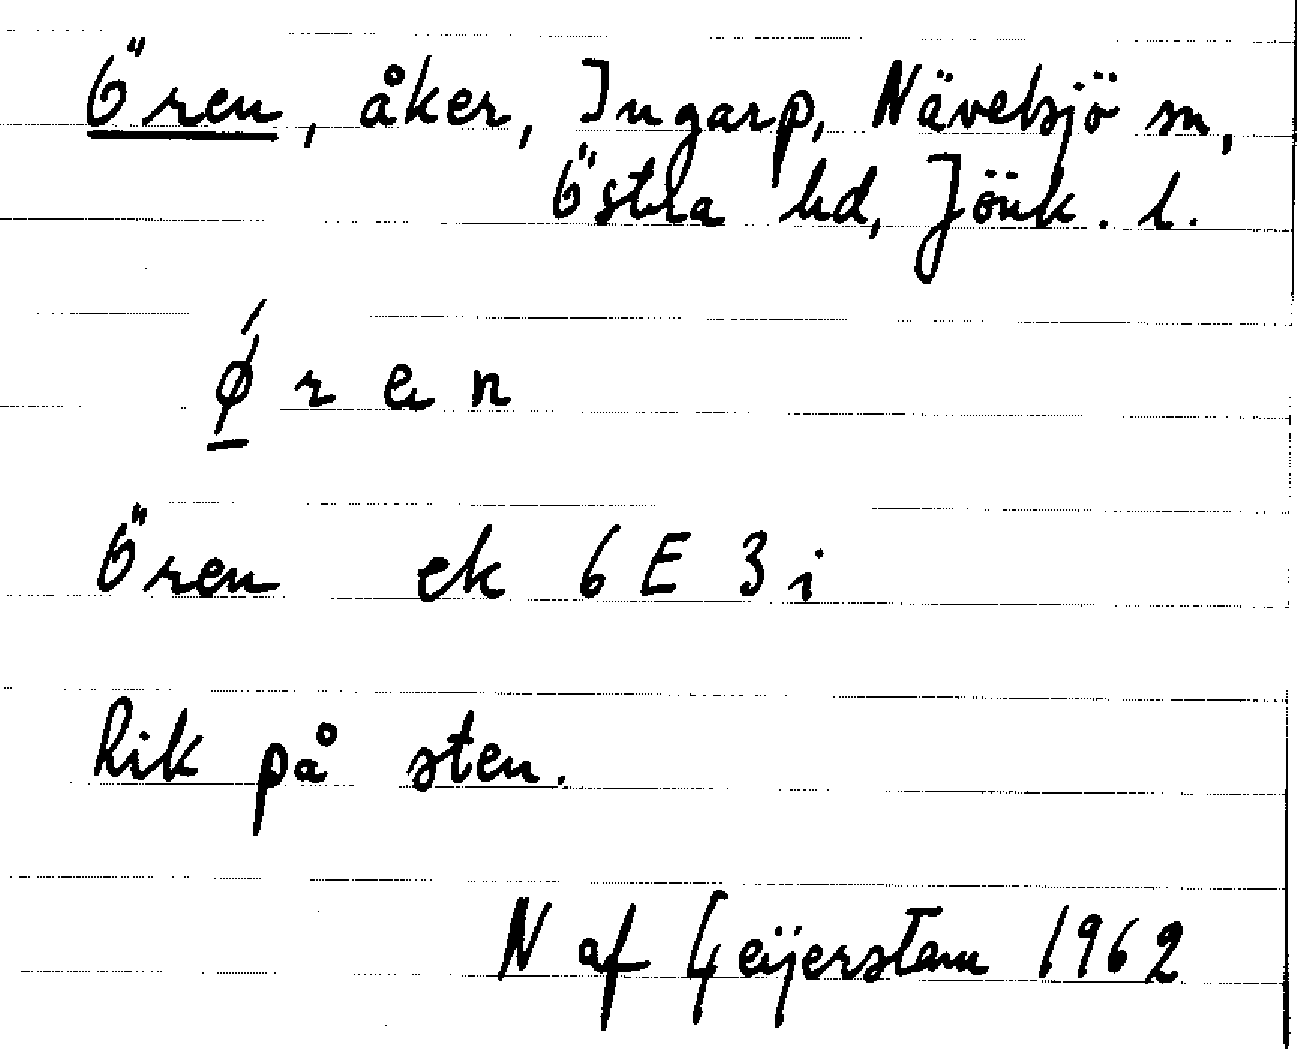 Ören, åker, Ingarp, Nävelsjö sn,
Östra hd, Jönk. l.
ǿ̲ r e n
Ören ek 6 E 3 i
Rik på sten.
N af Geijerstam 1962